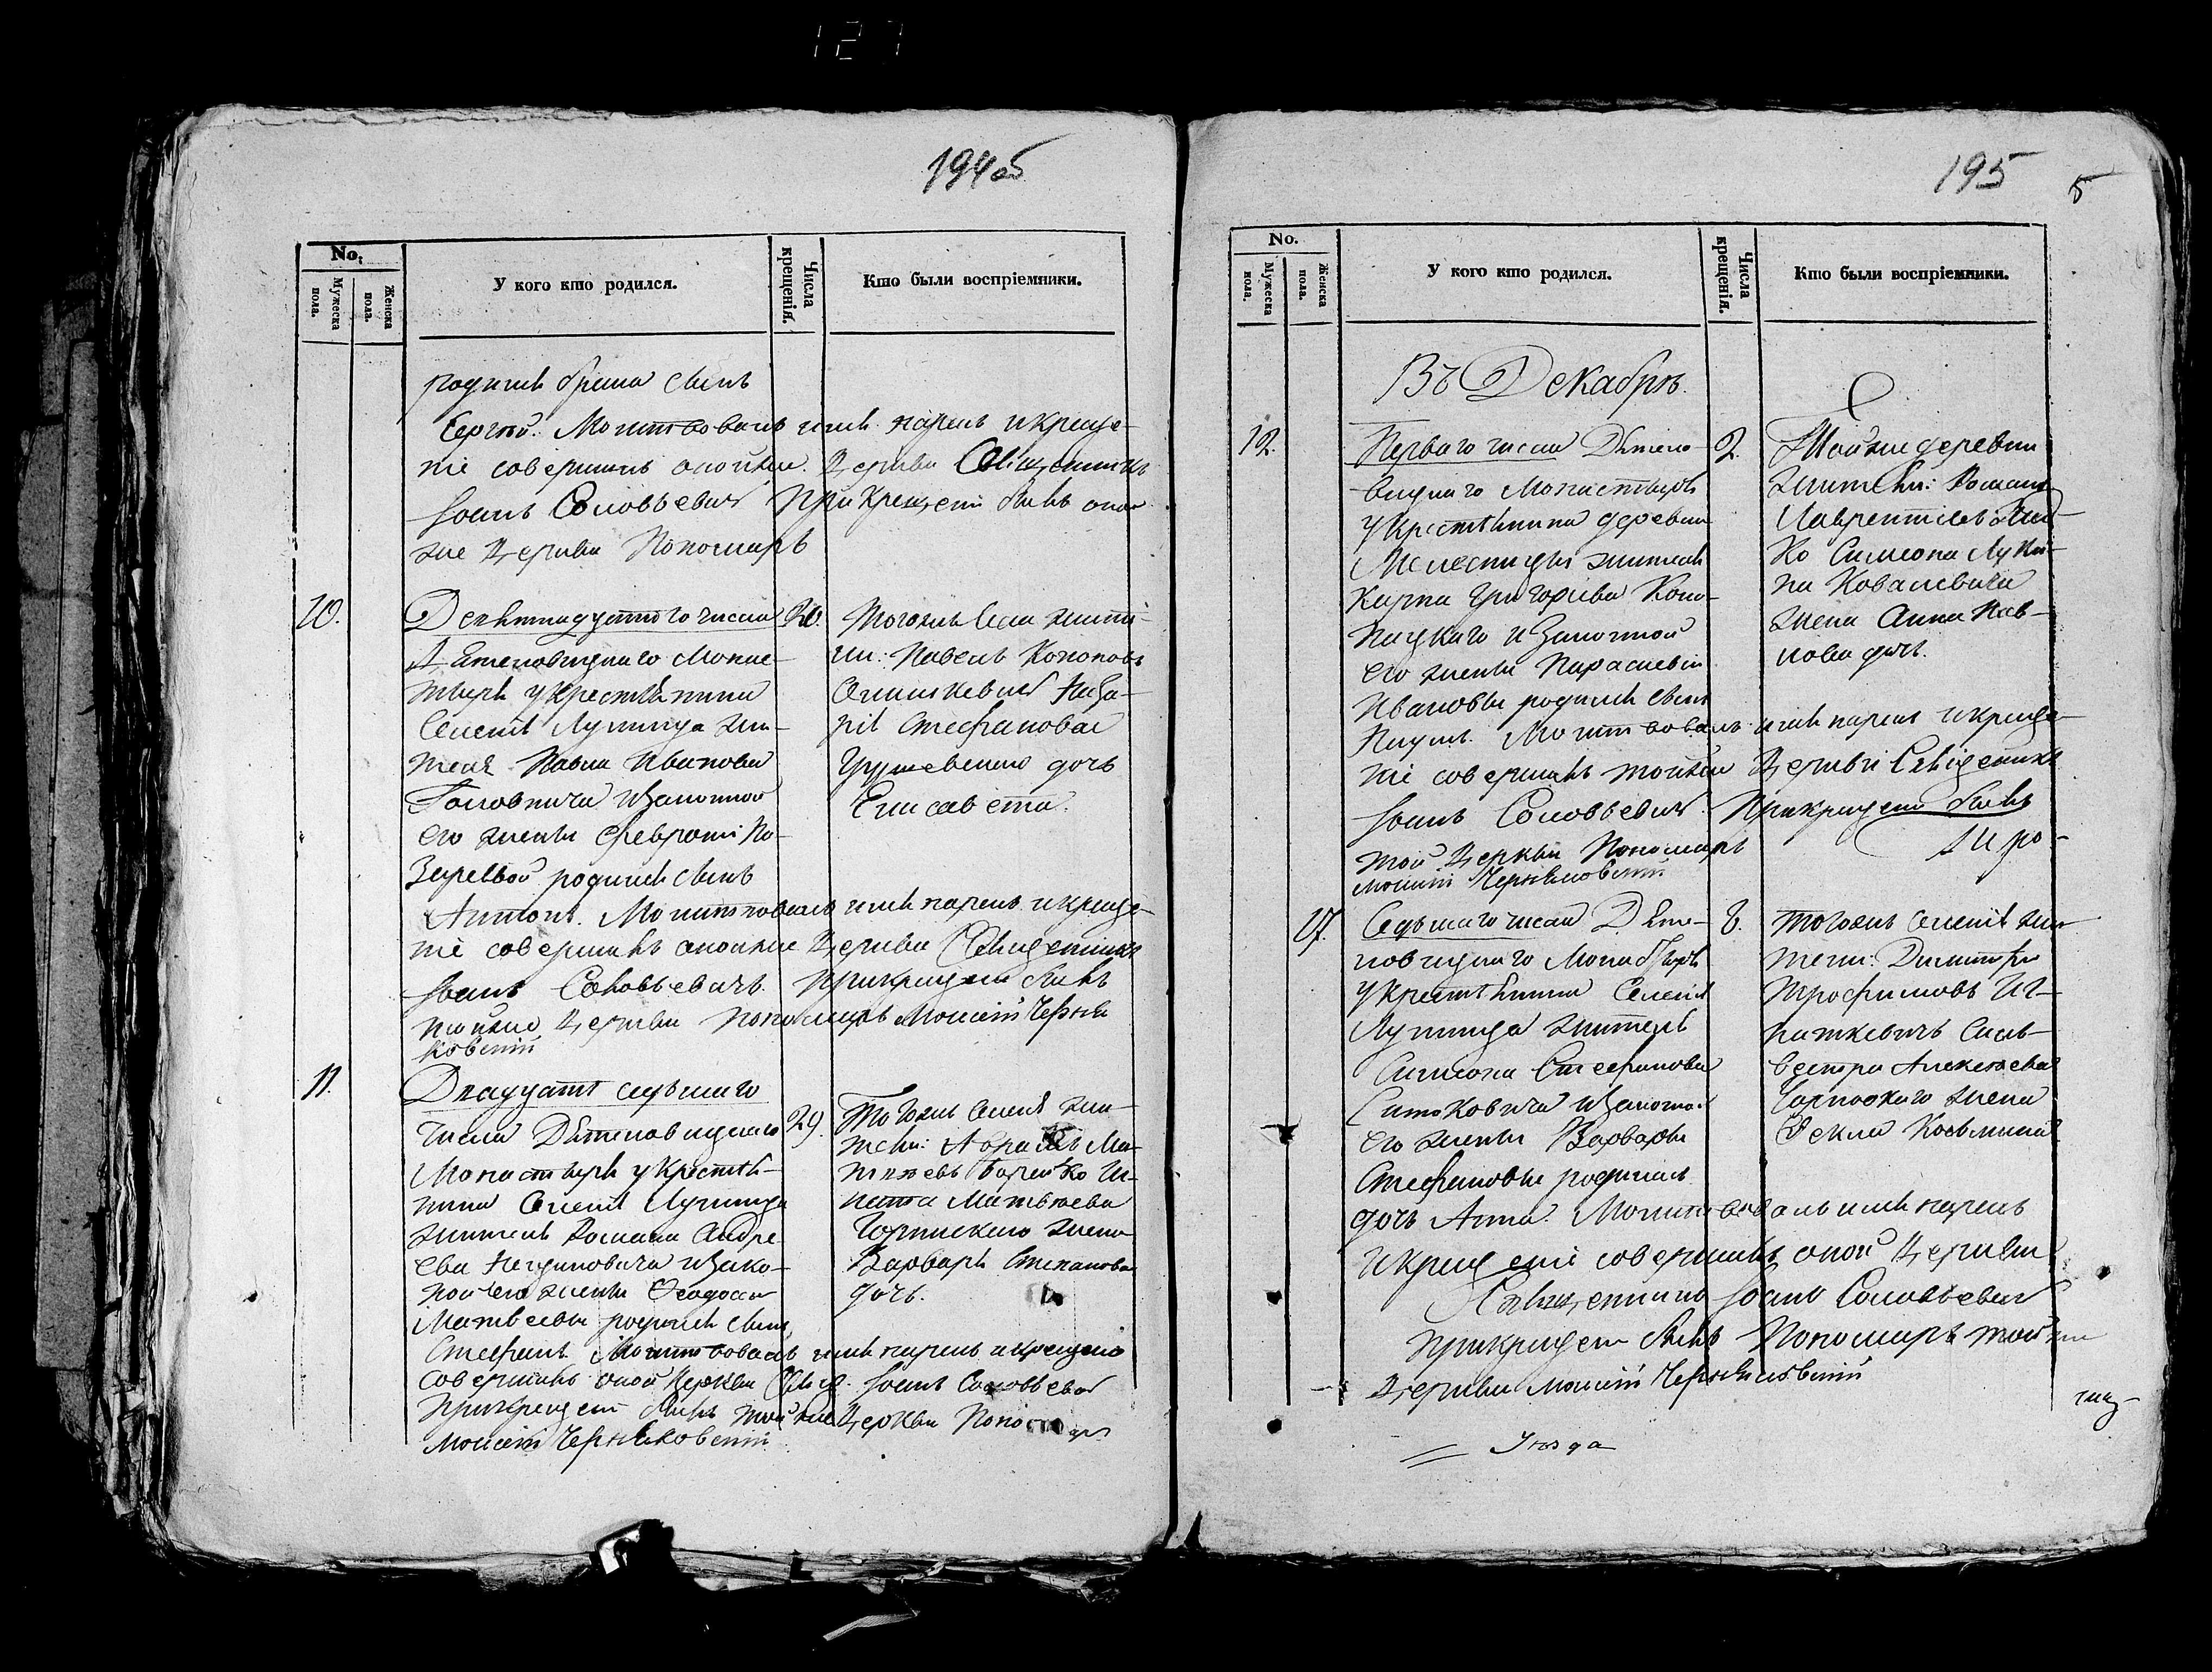 127
194об
No.
Мужеска пола.
Женска пола.
У кого кто родился.
Числа крещенія.
Кто были воспріемники.
родился брака сынъ
Сергій. Молитвовалъ имя нарекъ и креще-
ніе совершилъ оной же Церкви Священникъ
Іоанъ Соловьевичъ При Крещеніи былъ оной
же Церкви Пономарь
10.
Девятнадцатого числа
20.
Дятеловицкаго Монас-
тыря у крестьянина
Селенія Лунинца жи-
теля Павла Иванова
его жены Февроніи
родился сынъ
Антонъ. Молитвовалъ имя нарекъ и креще-
ніе совершилъ оной же Церкви Священникъ
Іоанъ Соловьевичъ при крещеніи былъ
Церкви Пономарь Моисей Черня
ковскій
Тогожъ Села жите-
ли: Павелъ Кононовъ
Стефановая
дочь
Елисавета.
11.
Двадцать седьмаго
числа Дятеловицкаго
29.
Монастыря у крестья-
нина Селенія Лунинца
жителя Романа Андре
ева
и Зако-
ной его жены Феодосіи
Матвеевы родился сынъ
Стефанъ Молитвовалъ имя нарекъ и крещеніе
совершилъ оной Церкви Свящ. Іоанъ Соловьевич
При крещеніи былъ той же Церкви Пономарь
Моисей Черняковскій
Тогожъ Селенія жи-
тели:
Матвеева
жена
Варвара Степанова
дочь.
195
5
No.
Мужеска пола.
Женска пола.
У кого кто родился.
Числа крещенія.
Кто были воспріемники.
Въ Декабрѣ.
12.
Перваго числа Дятело-
2.
вицкаго Монастыря
у крестьянина деревни
жителя
Карпа Григорієва Коно-
пацкаго и Законной
его жены Параскевіи
Ивановы родился сынъ
Наумъ. Молитвовалъ имя нарекъ и креще-
ніе совершилъ той же Церкви Священникъ
Іоанъ Соловьевичъ При крещеніи былъ
той Церкви Пономарь
Моисей Черняковскій
Той же деревни
жители: Романъ
Лаврентіевъ
ко Симеона Луки-
на Ковалевича
жена Анна Пав-
лова дочь.
17.
Седьмаго числа Дяте-
8.
ловицкаго Монастыря
у крестьянина Селенія
Лунинца жителя
Симеона Стефанова
и Законной
его жены Варвары
Стефановы родилась
дочь Анна. Молитвовалъ имя нарекъ
и крещеніе совершилъ оной Церкви
Священникъ Іоанъ Соловьевич
При крещеніи былъ Пономарь той же
Церкви Моисей Черняковскій
Тогожъ Селенія жи-
тели: Димитрій
Трофимовъ Иг-
наткевичъ Силь-
вестра Алексеева
жена
Фекла Козьмина
Уезда